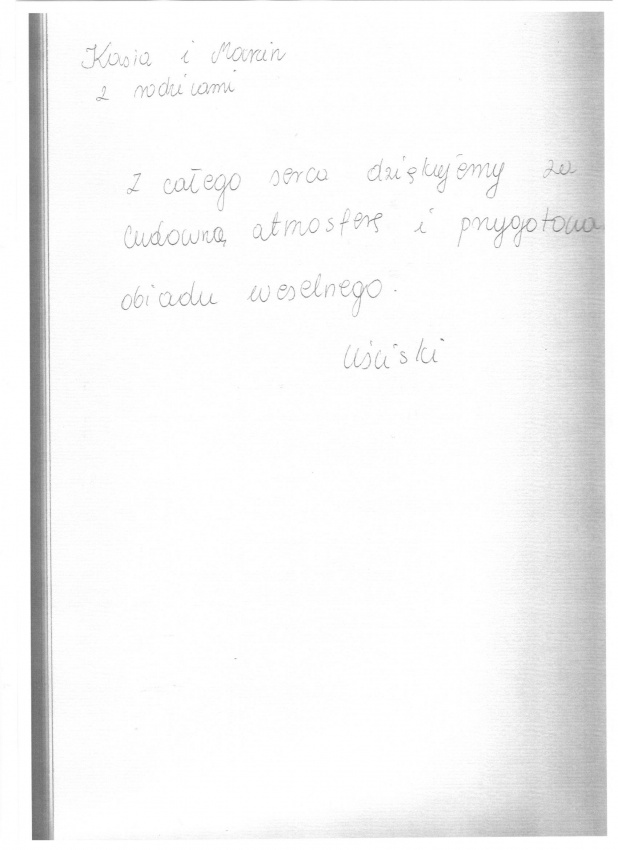 Kasia i Marcin
z rodzicami
Z całego serca dziękujemy za
cudowną atmosferę i przygotowa
obiadu weselnego.
Uściski